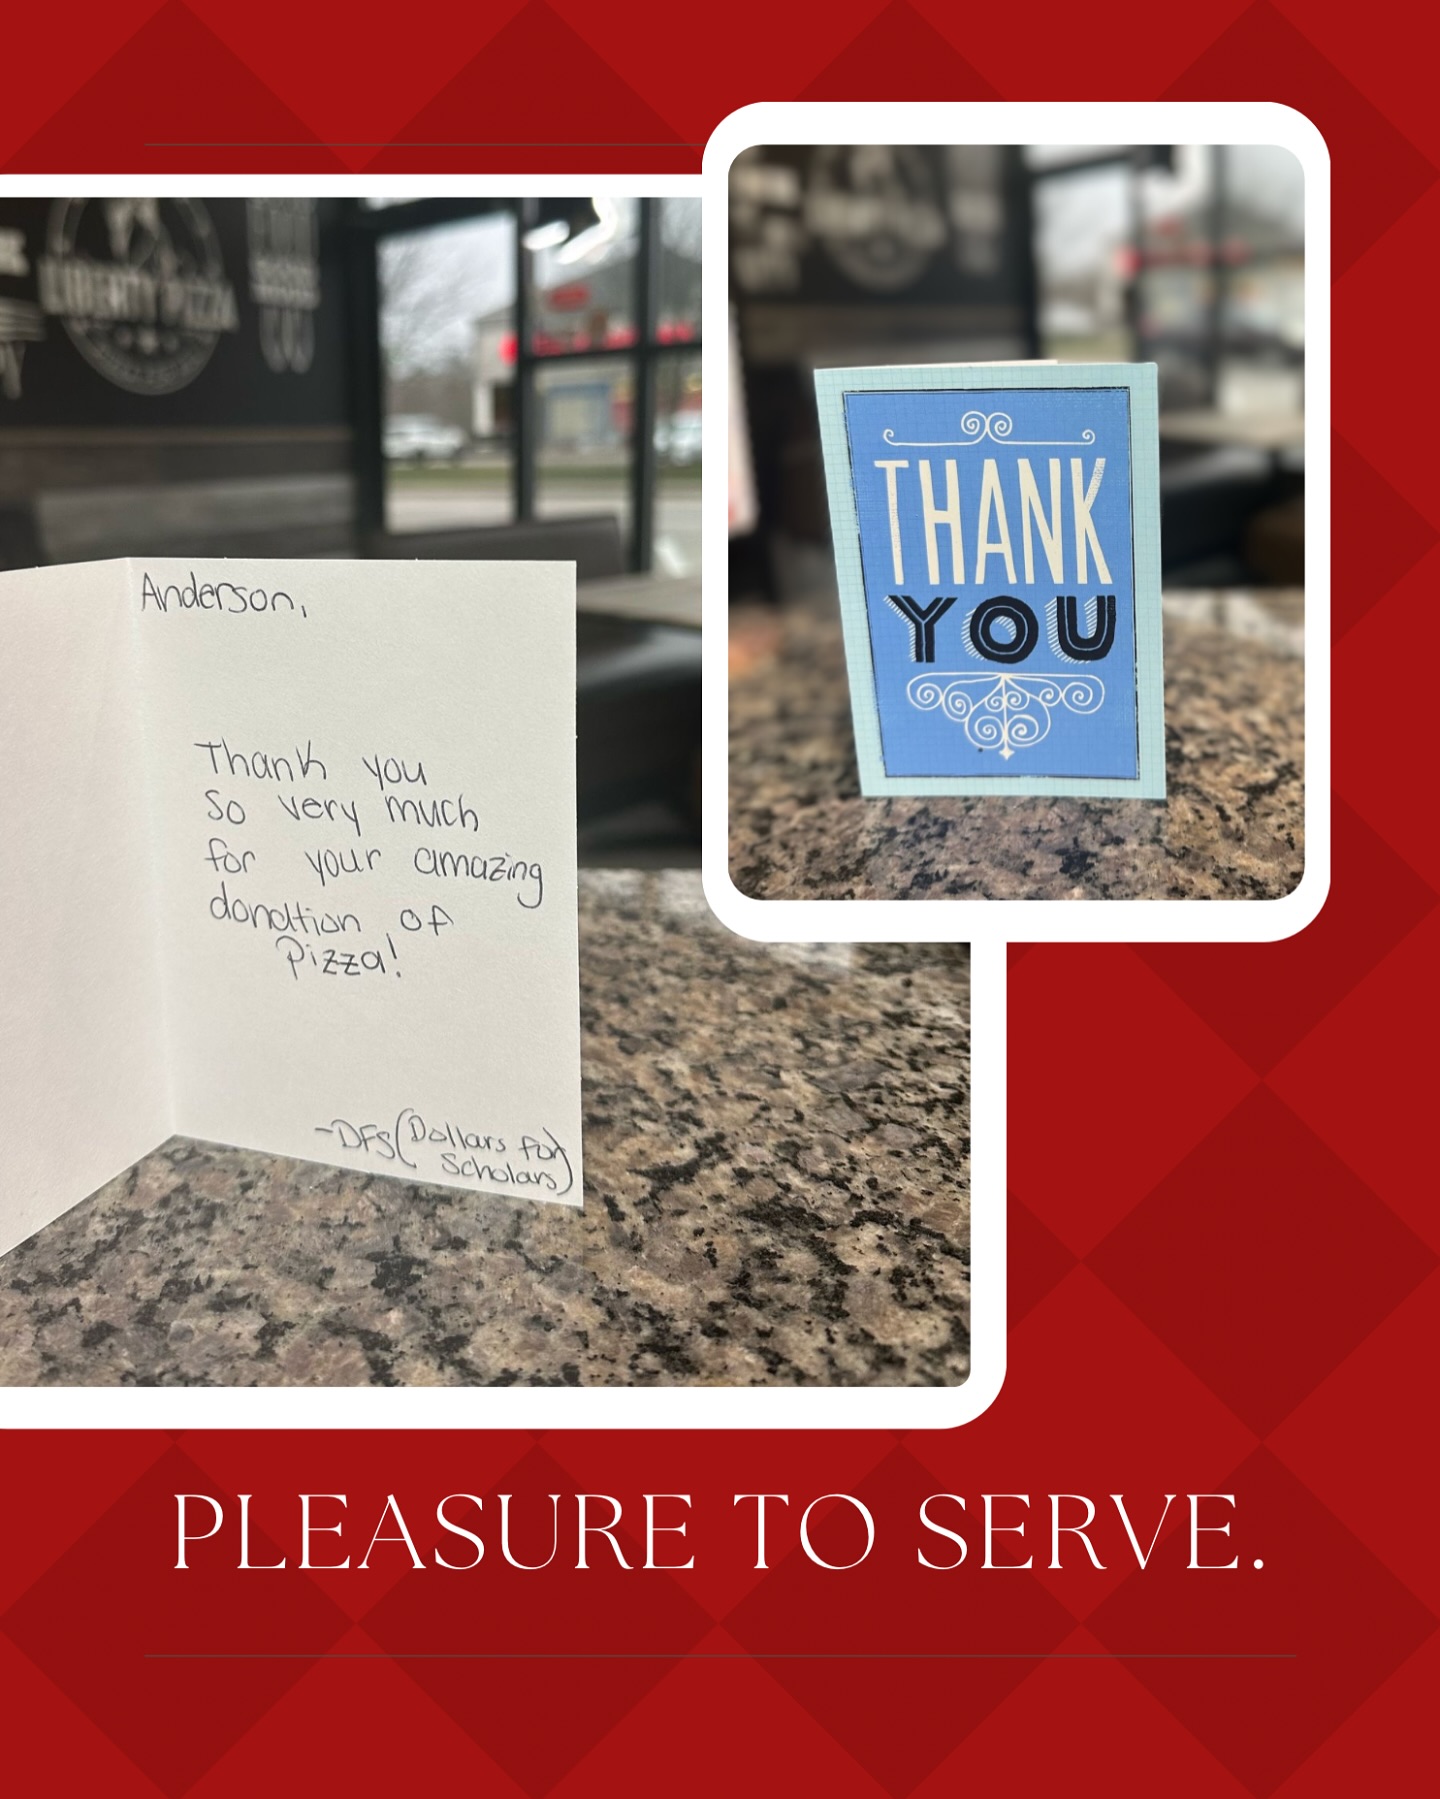 LIBERTY PIZZA
THANK
YOU
Anderson,
Thank you
so very much
for your amazing
donation of
Pizza!
-DFS (Dollars for
Scholars)
PLEASURE TO SERVE.